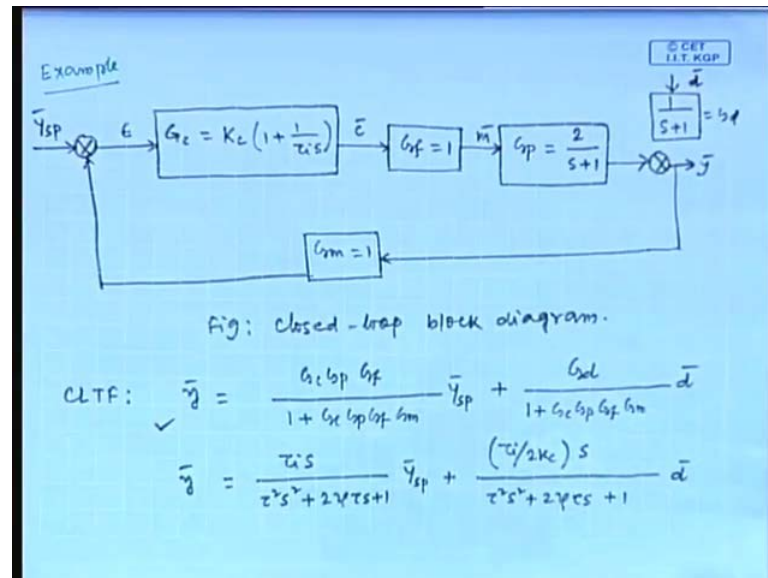 © CET
I.I.T. KGP
Example
d̄
1/(s+1) = Gd
ȳsp
ε
Gc = Kc (1 + 1/(τi s))
c̄
Gf = 1
m̄
Gp = 2/(s+1)
ȳ
Gm = 1
Fig: Closed-loop block diagram.
CLTF: ȳ = (Gc Gp Gf)/(1 + Gc Gp Gf Gm) ȳsp + Gd/(1 + Gc Gp Gf Gm) d̄
ȳ = (τi s)/(τ²s² + 2ψτs + 1) ȳsp + ((τi/2Kc) s)/(τ²s² + 2ψτs + 1) d̄